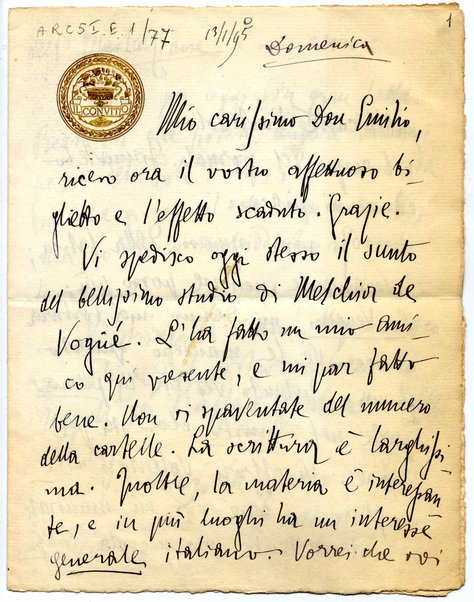 1
ARC5I.E.1/77 13/1/95
Domenica
IL CONVITO
Mio carissimo Don Emilio,
ricevo ora il vostro affettuoso bi-
glietto e l'effetto scaduto. Grazie.
Vi spedisco oggi stesso il sunto
del bellissimo studio di Melchior de
Vogüé. L'ha fatto un mio ami-
co qui presente, e mi par fatto
bene. Non vi spaventate del numero
delle cartelle. La scrittura è larghissi-
ma. Inoltre, la materia è interessan-
te, e in più luoghi ha un interesse
generale italiano. Vorrei che voi